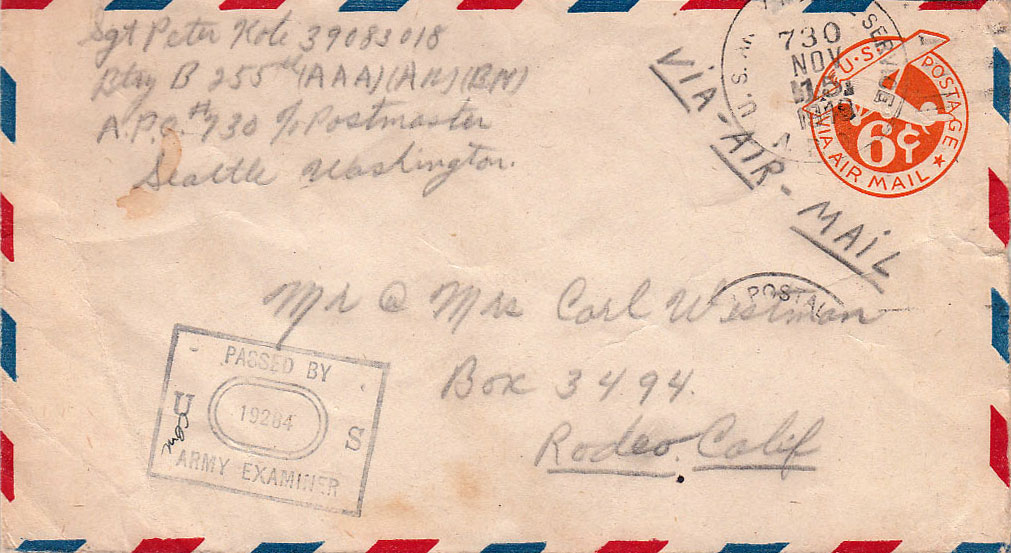 Sgt Peter Kole 39083018
Btry B 255th (AAA)(AW)(BM)
A.P.O. #730 c/o Postmaster
Seattle Washington.
U.S. SERVICE
730
NOV
15
U.S. POSTAGE
6¢
VIA AIR MAIL
VIA-AIR-MAIL
POSTAL
Mr & Mrs Carl Westman
Box 3494.
Rodeo. Calif
PASSED BY
U 19284 S
ARMY EXAMINER